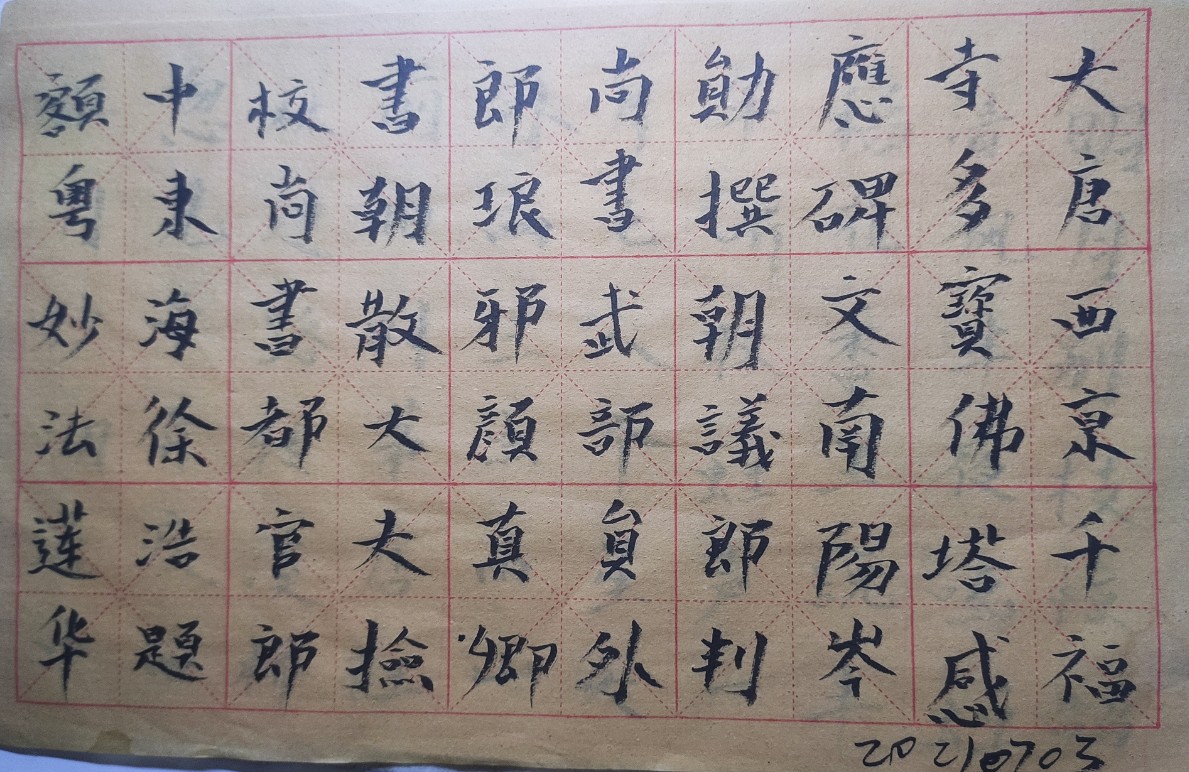 大唐西京千福
寺多寶佛塔感
應碑文南陽岑
勛撰朝議郎判
尚書武部員外
郎琅邪顏真卿
書朝散大夫撿
校尚書都官郎
中東海徐浩題
額粵妙法蓮华
20210703